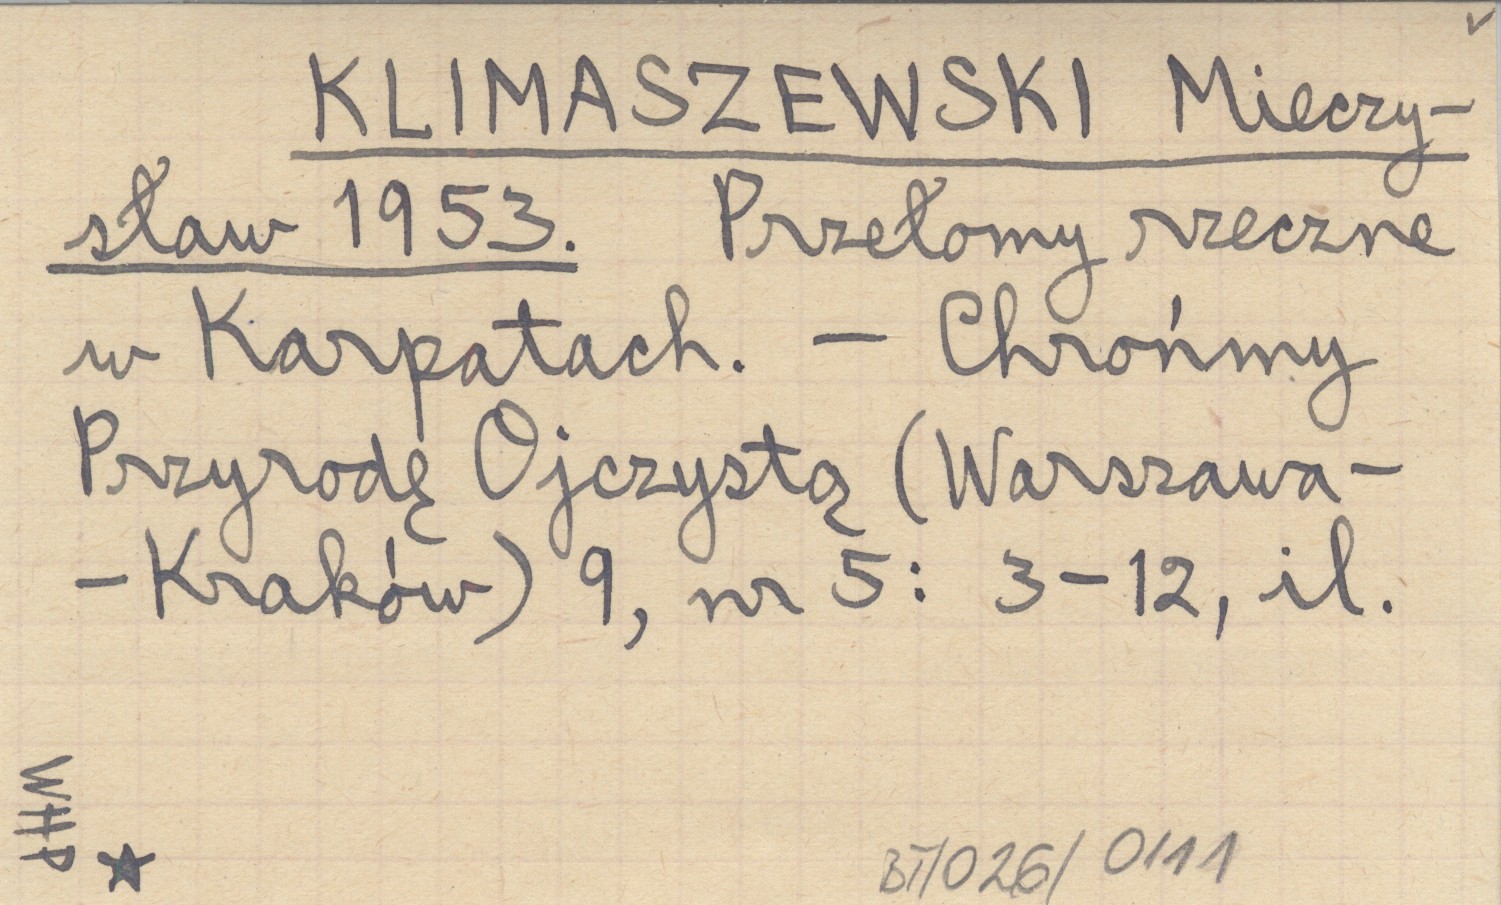 KLIMASZEWSKI Mieczy-
sław 1953. Przełomy rzeczne
w Karpatach. — Chrońmy
Przyrodę Ojczystą (Warszawa-
-Kraków) 9, nr 5: 3-12, il.
WHP
BT/026/0111